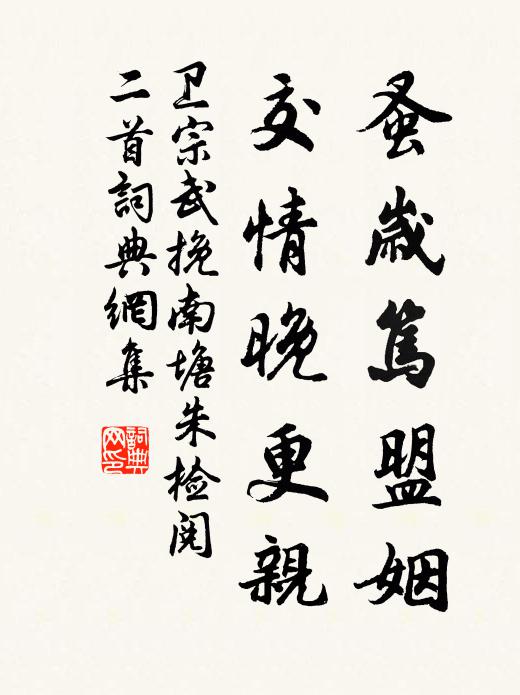 蚤歲篤盟姻
交情晚更親
卫宗武挽南塘朱检阅
二首詞典網集
詞典
网印